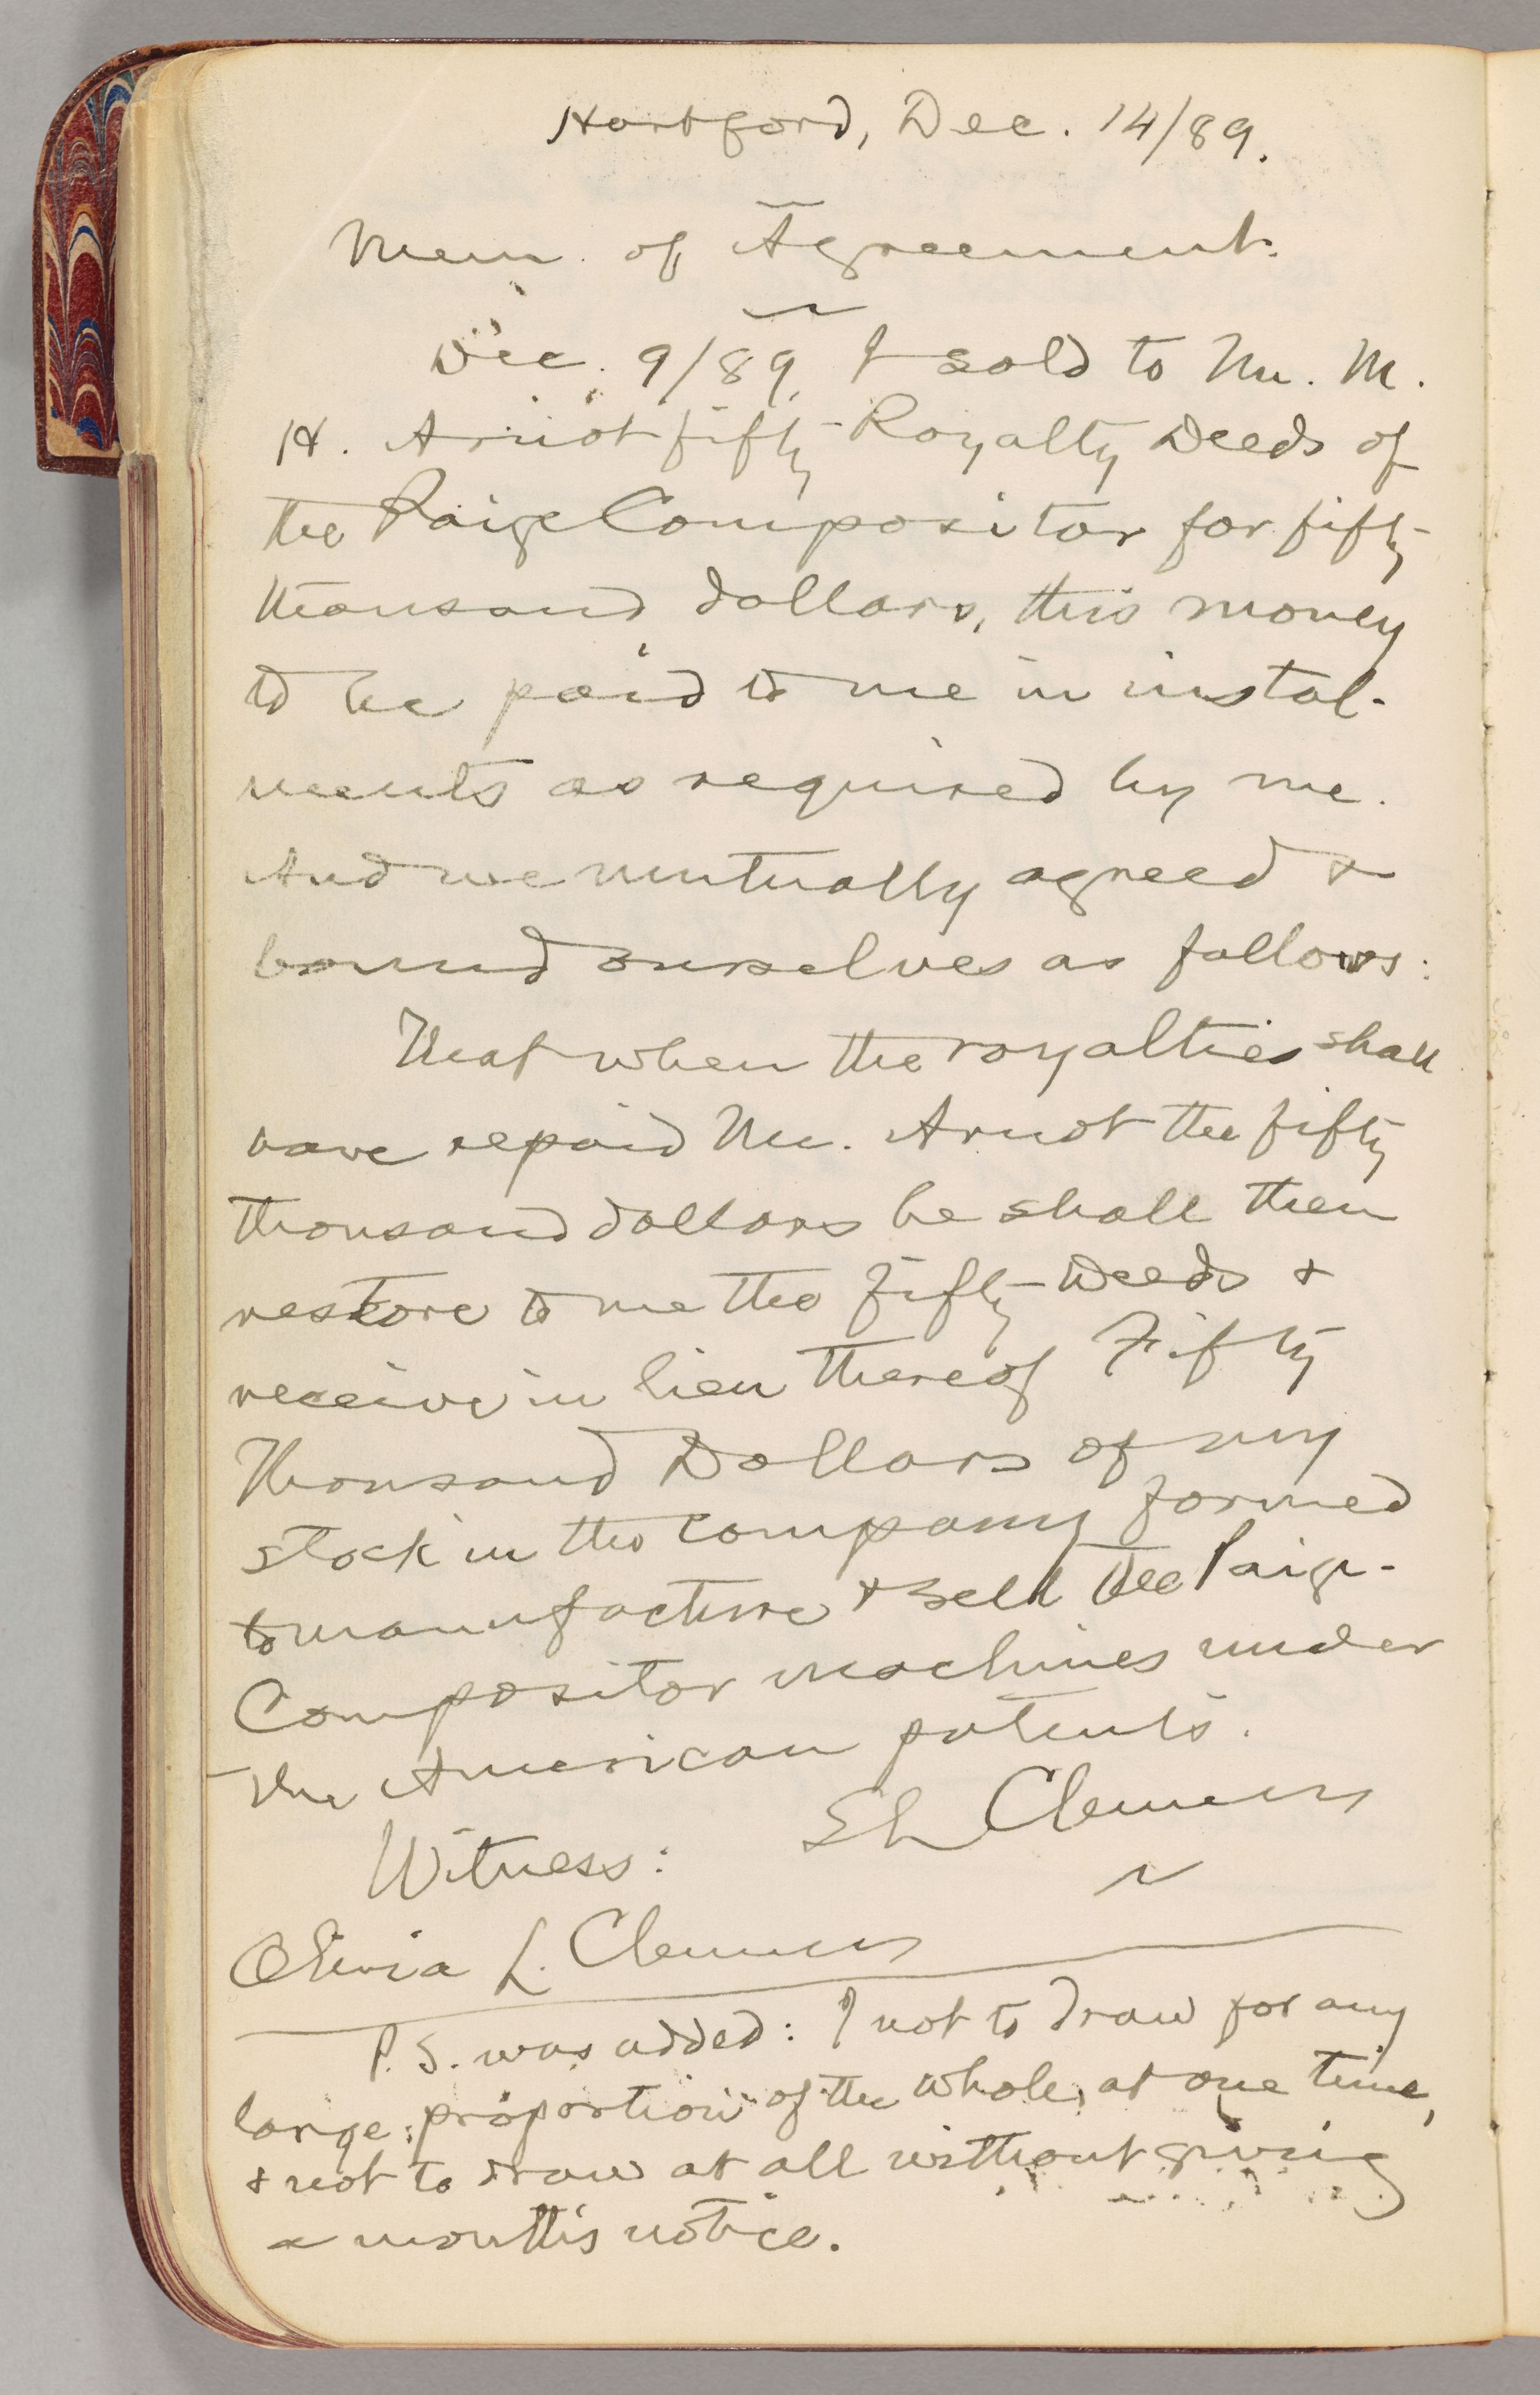 Hartford, Dec. 14/89.
Mem. of Agreement.
Dec. 9/89, I sold to Mr. M.
H. Arnot fifty Royalty Deeds of
the Paige Compositor for fifty
thousand dollars, this money
to be paid to me in instal-
ments as required by me.
And we mutually agreed &
bound ourselves as follows:
That when the royalties shall
have repaid Mr. Arnot the fifty
thousand dollars he shall then
restore to me the fifty Deeds &
receive in lieu thereof Fifty
Thousand Dollars of my
stock in the company formed
to manufacture & sell the Paige
Compositor machines under
the American patents.
SL Clemens
Witness:
Olivia L. Clemens
P.S. was added: I not to draw for any
large proportion of the whole, at one time,
& not to draw at all without giving
a month's notice.